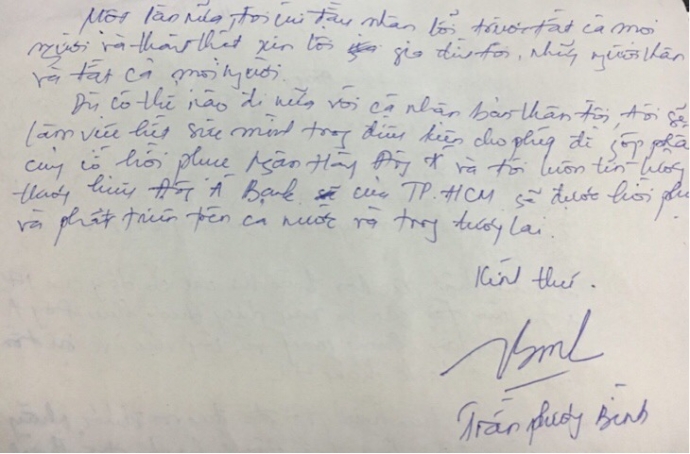 Một lần nữa, tôi cúi đầu nhận lỗi trước tất cả mọi
người và thành thật xin lỗi gia đình tôi, những người thân
và tất cả mọi người.
Dù có thế nào đi nữa với cá nhân bản thân tôi, tôi sẽ
làm việc hết sức mình trong điều kiện cho phép để góp phần
củng cố hồi phục Ngân Hàng Đông Á và tôi luôn tin tưởng
thương hiệu Đông Á Bank của TP.HCM sẽ được hồi phục
và phát triển trên cả nước và trong tương lai.
Kính thư.
Trần Phương Bình